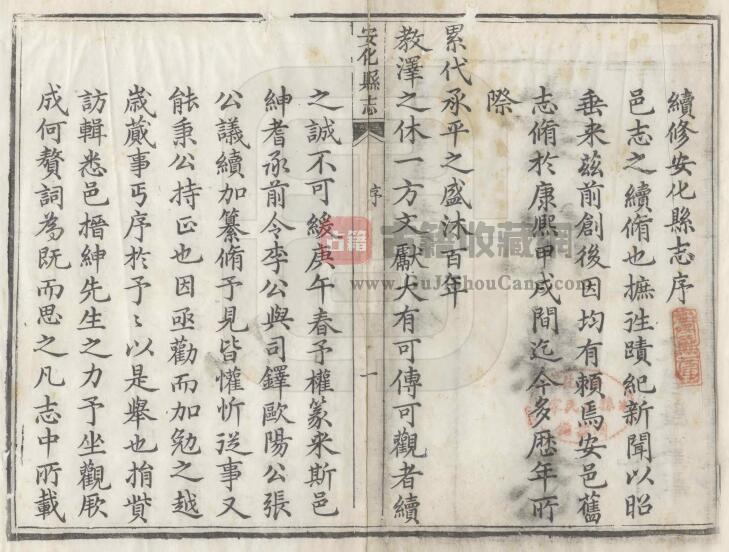 續修安化縣志序
邑志之續脩也摭徃蹟紀新聞以昭
垂来兹前創後因均有賴焉安邑舊
志脩於康熙甲戌間迄今多歴年所
際
累代承平之盛沐百年
教澤之休一方文獻大有可傳可觀者續
安化縣志
序
一
之誠不可緩庚午春予權篆来斯邑
紳耆承前令李公與司鐸歐陽公張
公議續加纂脩予見皆懽忻從事又
能秉公持正也因亟勸而加勉之越
歲蕆事丐序於予〻以是舉也捐貲
訪輯悉邑搢紳先生之力予坐觀厥
成何贅詞為既而思之凡志中所載
古籍
古籍收藏網
www.GuJiShouCang.com